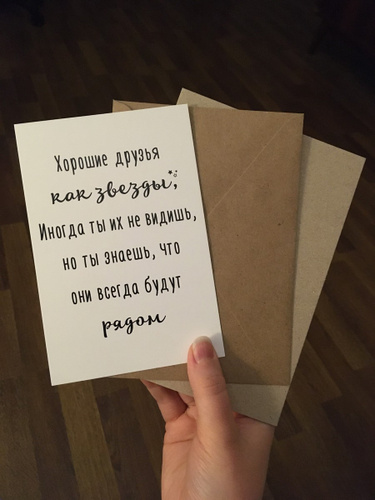 Хорошие друзья
как звезды,
Иногда ты их не видишь,
но ты знаешь, что
они всегда будут
рядом